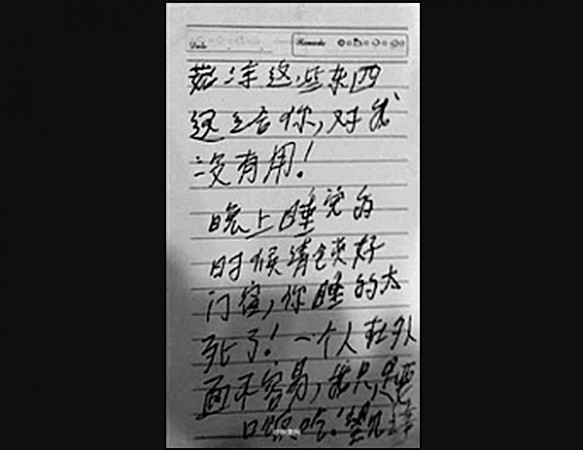 Date
Remarks
菇凉这些东西
还是给你,对我
没有用!
晚上睡觉的
时候请锁好
门窗,你睡的太
死了!一个人在外
面不容易,我只是要
口饭吃!望见谅